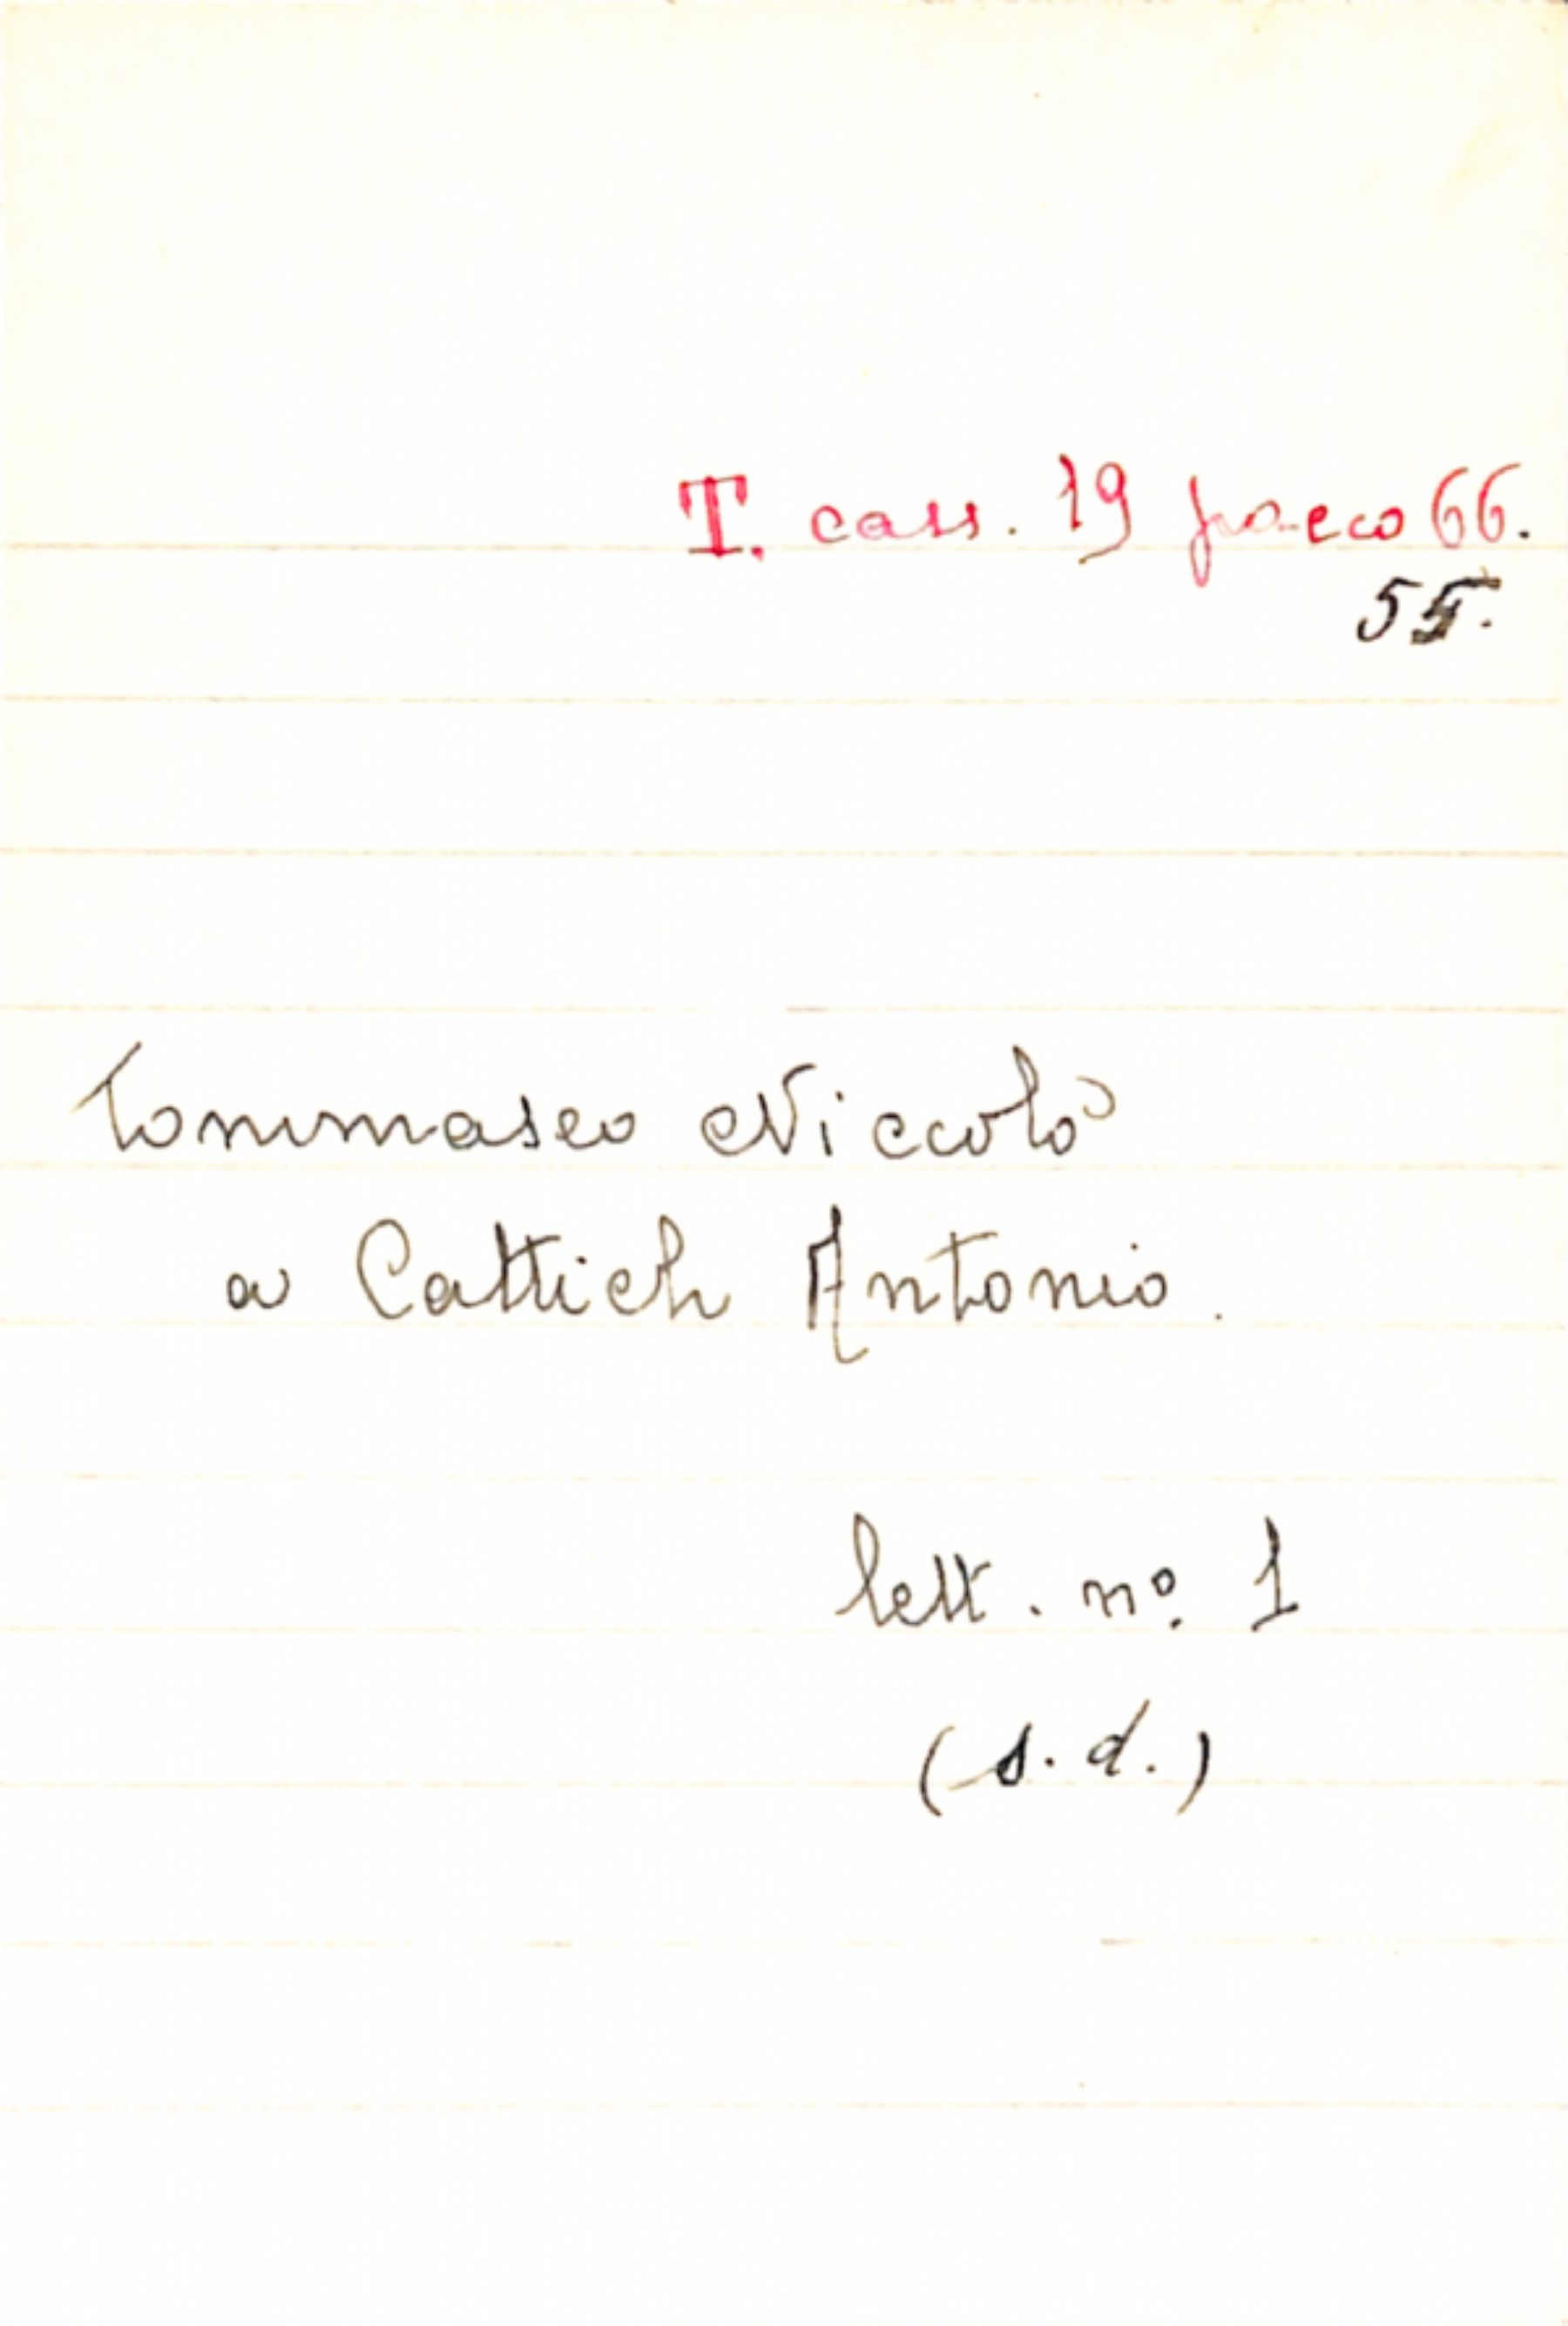 T. cass. 19 pacco 66.
55.
Tommaseo Niccolò
a Cattich Antonio.
lett. nº 1
(s.d.)